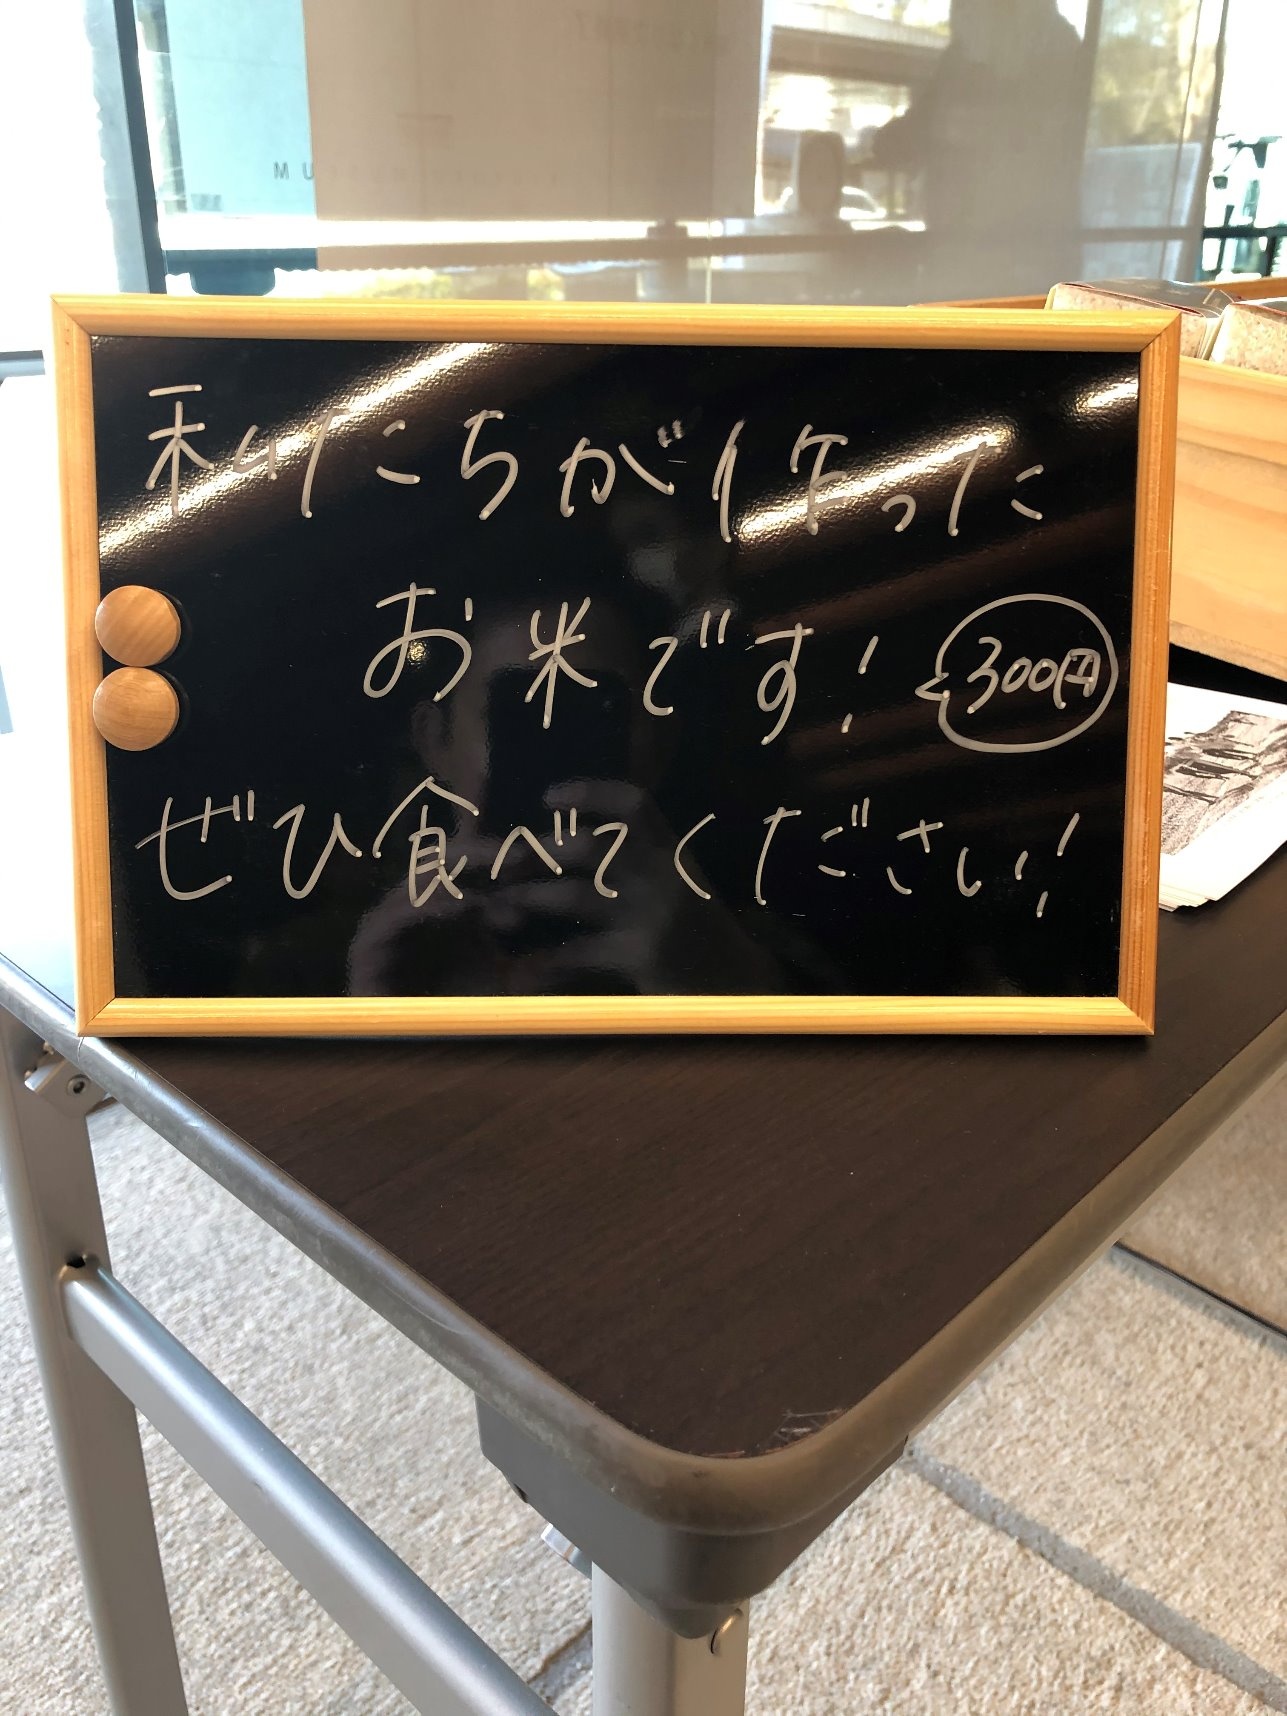 私たちが作った
お米です! 300円
ぜひ食べてください!